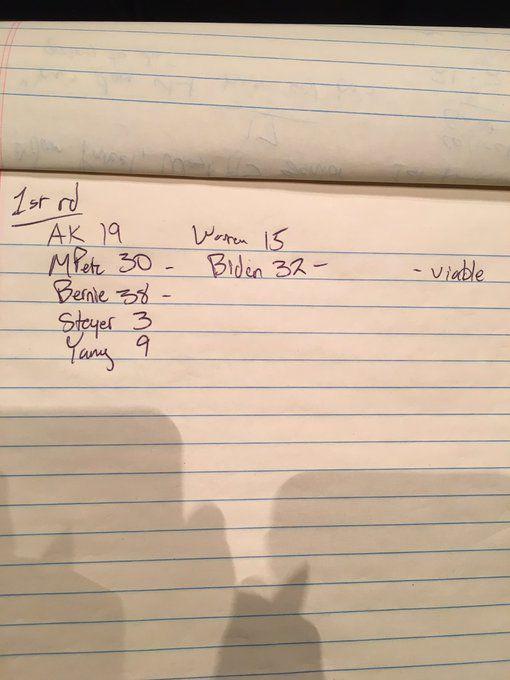 1st rd
AK 19 Warren 15
MPete 30 - Biden 32 - - viable
Bernie 38 -
Steyer 3
Yang 9